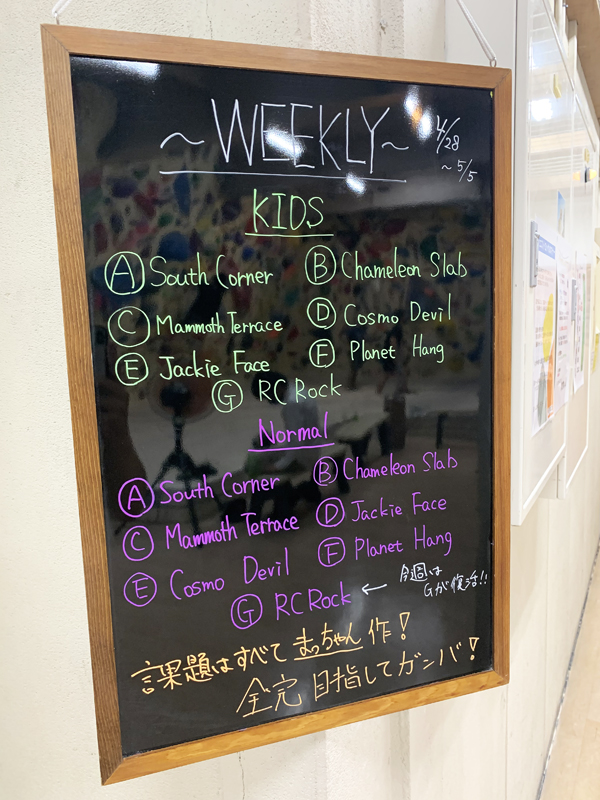 ~WEEKLY~ 4/28
~5/5
KIDS
Ⓐ South Corner Ⓑ Chameleon Slab
Ⓒ Mammoth Terrace Ⓓ Cosmo Devil
Ⓔ Jackie Face Ⓕ Planet Hang
Ⓖ RC Rock
Normal
Ⓐ South Corner Ⓑ Chameleon Slab
Ⓒ Mammoth Terrace Ⓓ Jackie Face
Ⓔ Cosmo Devil Ⓕ Planet Hang
Ⓖ RC Rock ← 今週は
Gが復活!!
課題はすべてまっちゃん作!
全完目指してガンバ!